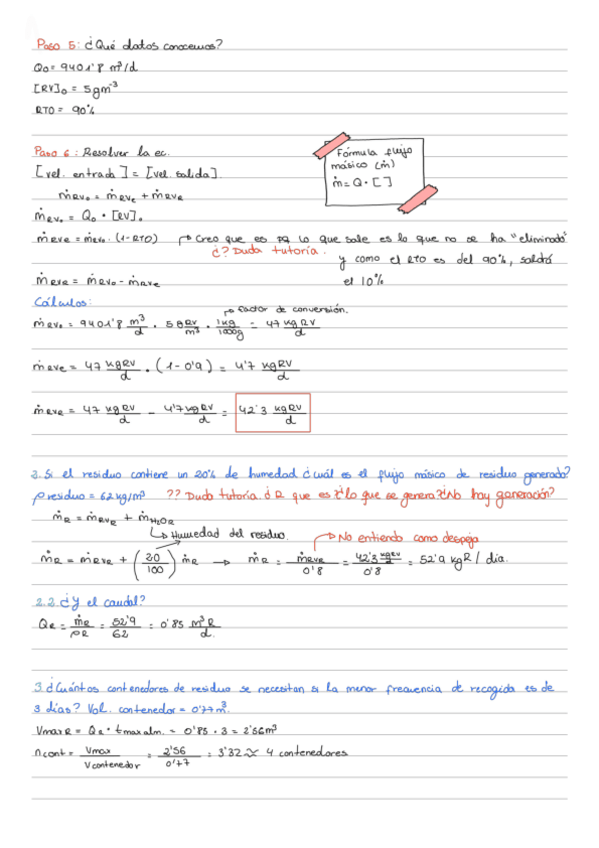 Paso 5: ¿Qué datos conocemos?
Q₀ = 9401'8 m³/d
[RV]₀ = 5 gm⁻³
RTO = 90%
Paso 6: Resolver la ec.
[vel. entrada] = [vel. salida]
ṁRV₀ = ṁRVe + ṁRVR
ṁRV₀ = Q₀ · [RV]₀
Fórmula flujo
másico (ṁ)
ṁ = Q · [ ]
ṁRVe = ṁRV₀ · (1-RTO) → Creo que es pq lo que sale es lo que no se ha "eliminado"
¿? Duda tutoría. y como el RTO es del 90%, saldrá
ṁRVR = ṁRV₀ - ṁRVe el 10%
Cálculos:
→ factor de conversión.
ṁRV₀ = 9401'8 m³/d · 5 gRV/m³ · 1kg/1000g = 47 kgRV/d
ṁRVe = 47 kgRV/d · (1-0'9) = 4'7 kgRV/d
ṁRVe = 47 kgRV/d - 4'7 kgRV/d = 42'3 kgRV/d
2. Si el residuo contiene un 20% de humedad ¿cuál es el flujo másico de residuo generado?
ρ residuo = 62 kg/m³ ?? Duda tutoría ¿R que es? ¿lo que se genera? ¿No hay generación?
ṁR = ṁRVR + ṁH2OR
→ Humedad del residuo.
→ No entiendo como despeja
ṁR = ṁRVR + (20/100) ṁR → ṁR = ṁRVR/0'8 = 42'3 kgRV/0'8 = 52'9 kgR/día.
2.2 ¿Y el caudal?
QR = ṁR/ρR = 52'9/62 = 0'85 m³R/d.
3. ¿Cuántos contenedores de residuo se necesitan si la menor frecuencia de recogida es de
3 días? Vol. contenedor = 0'77 m³.
Vmax R = QR · tmax alm. = 0'85 · 3 = 2'56 m³
ncont = Vmax/Vcontenedor = 2'56/0'77 = 3'32 ≈ 4 contenedores